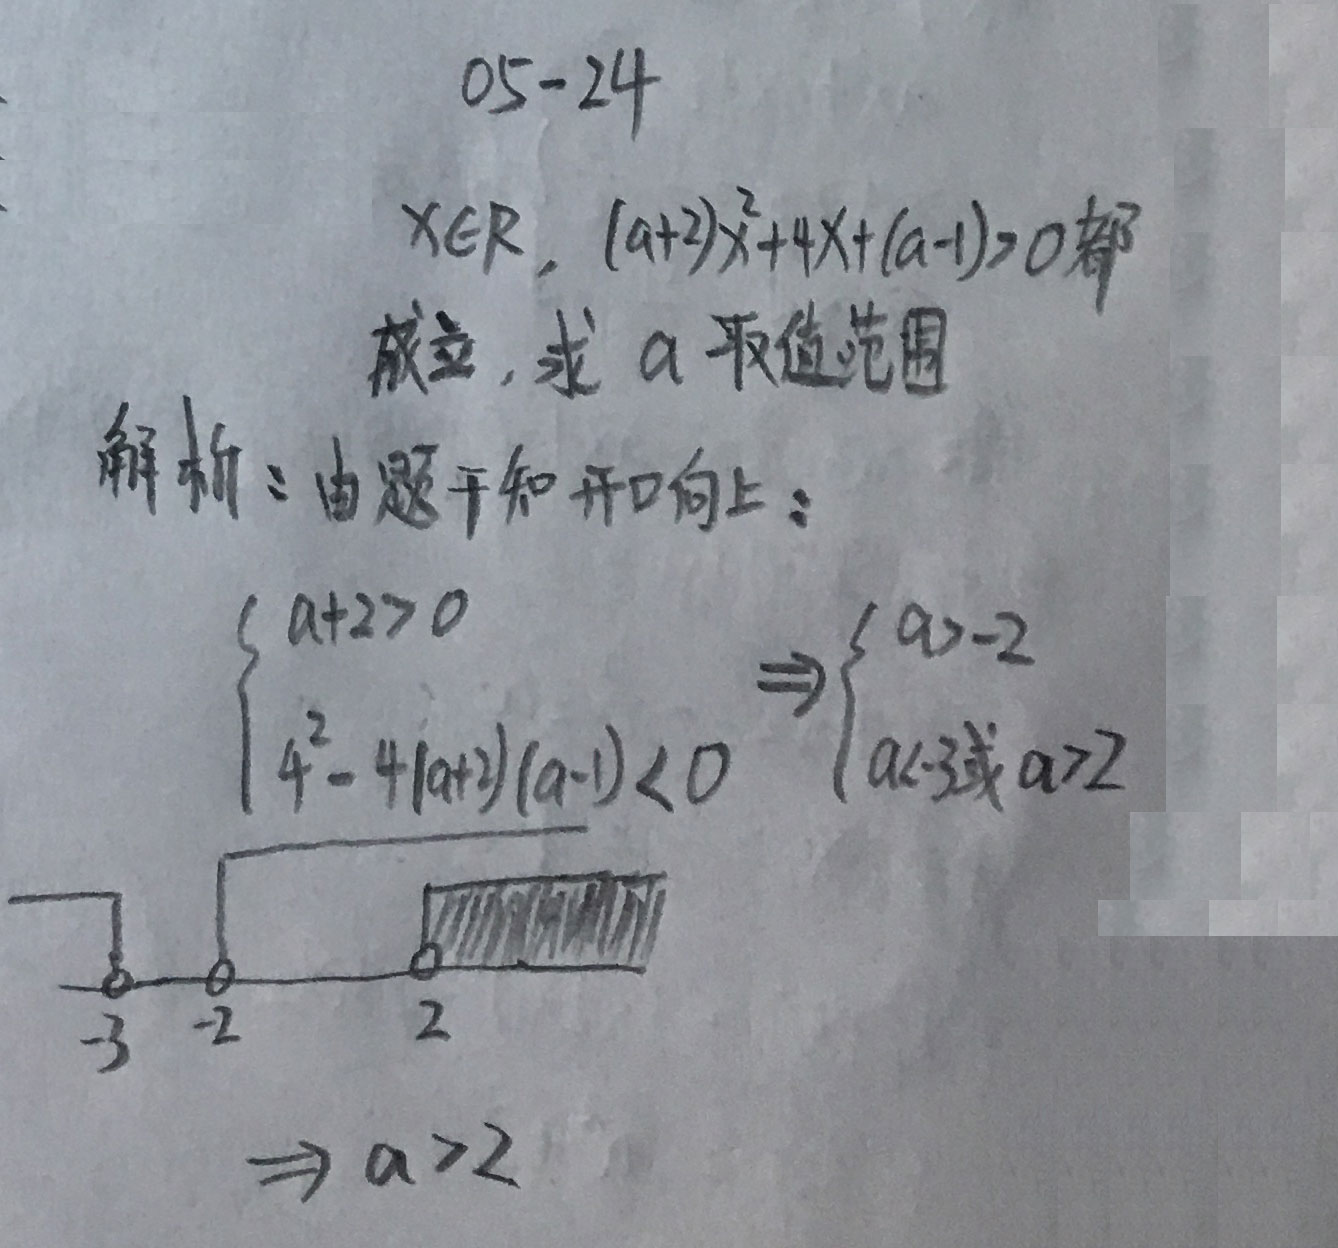 05-24
x∈R, (a+2)x²+4x+(a-1)>0都
成立,求 a 取值范围
解析:由题干知开口向上:
{ a+2>0
4²-4(a+2)(a-1)<0
⇒ { a>-2
a<-3或a>2
-3 -2 2
⇒ a>2